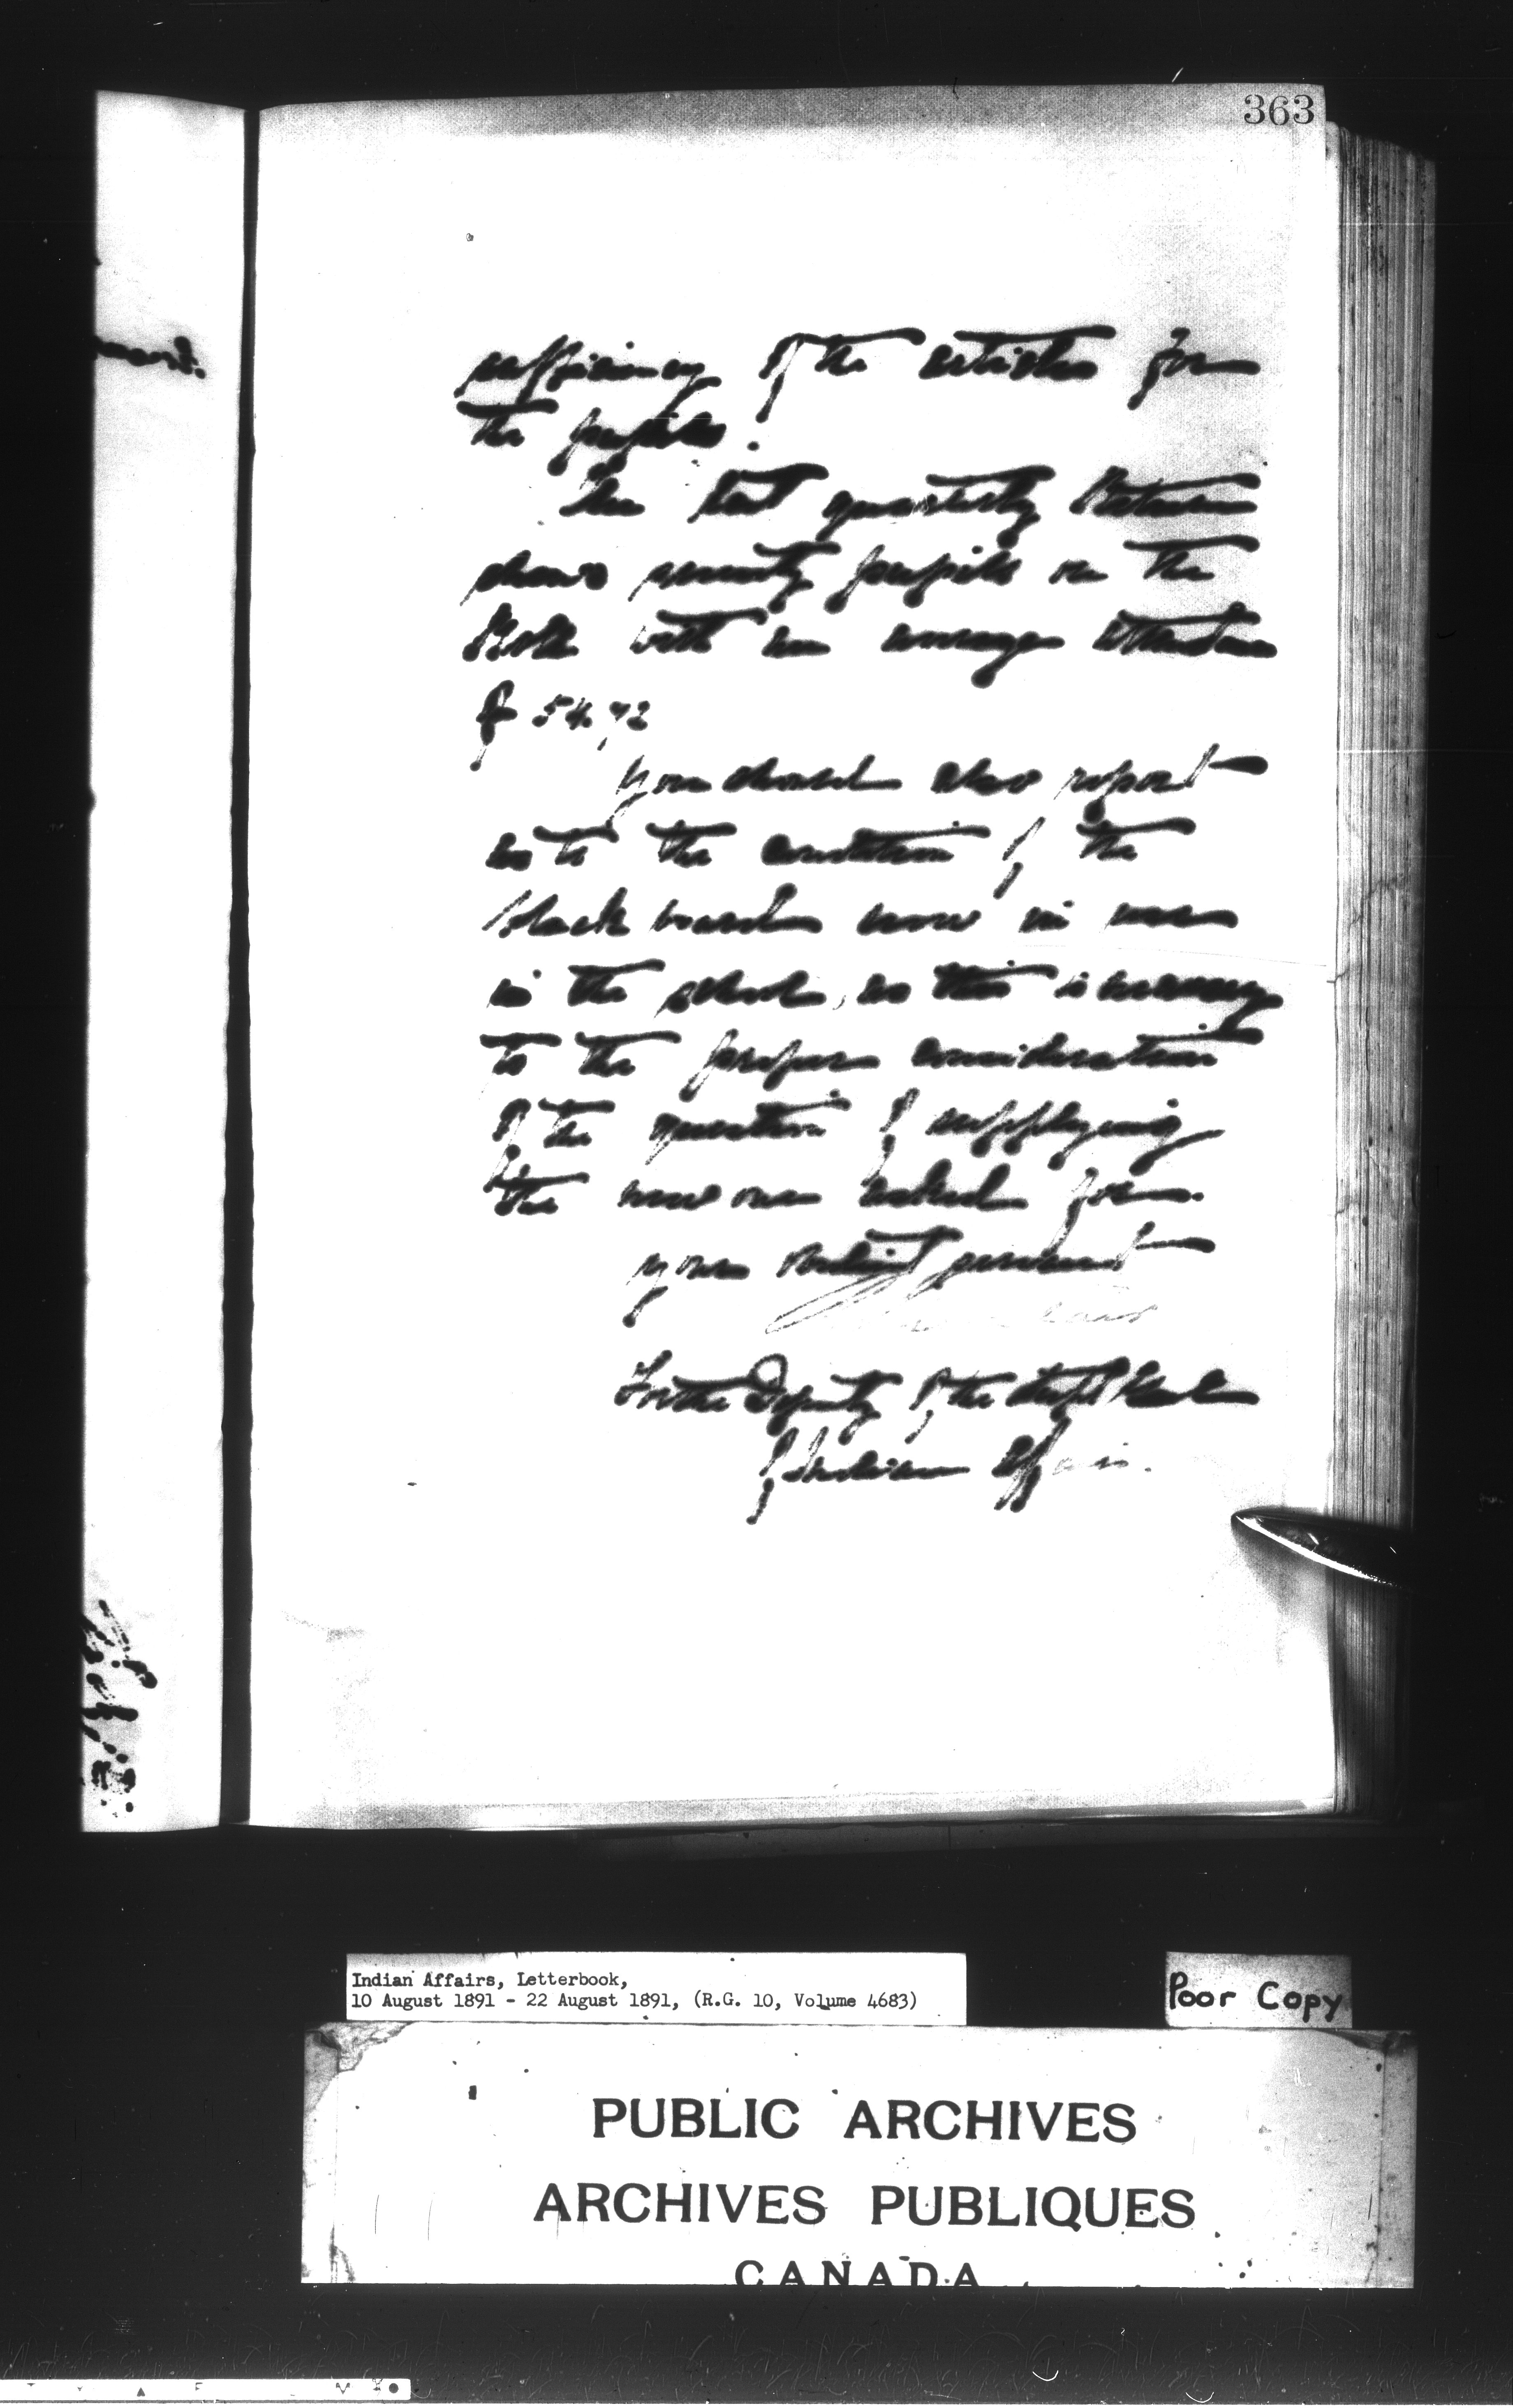 363
sufficiency of the articles for
the pupils.
The last quarterly Return
shows seventy pupils on the
Roll with an average attendance
of 54.72
You should also report
as to the condition of the
black boards now in use
in the school, as this is necessary
to the proper consideration
of the question of supplying
the new ones asked for.
Your obedient servant
For the Deputy of the Supt Genl
of Indian Affairs.
Indian Affairs, Letterbook,
10 August 1891 - 22 August 1891, (R.G. 10, Volume 4683)
Poor Copy
PUBLIC ARCHIVES
ARCHIVES PUBLIQUES
CANADA